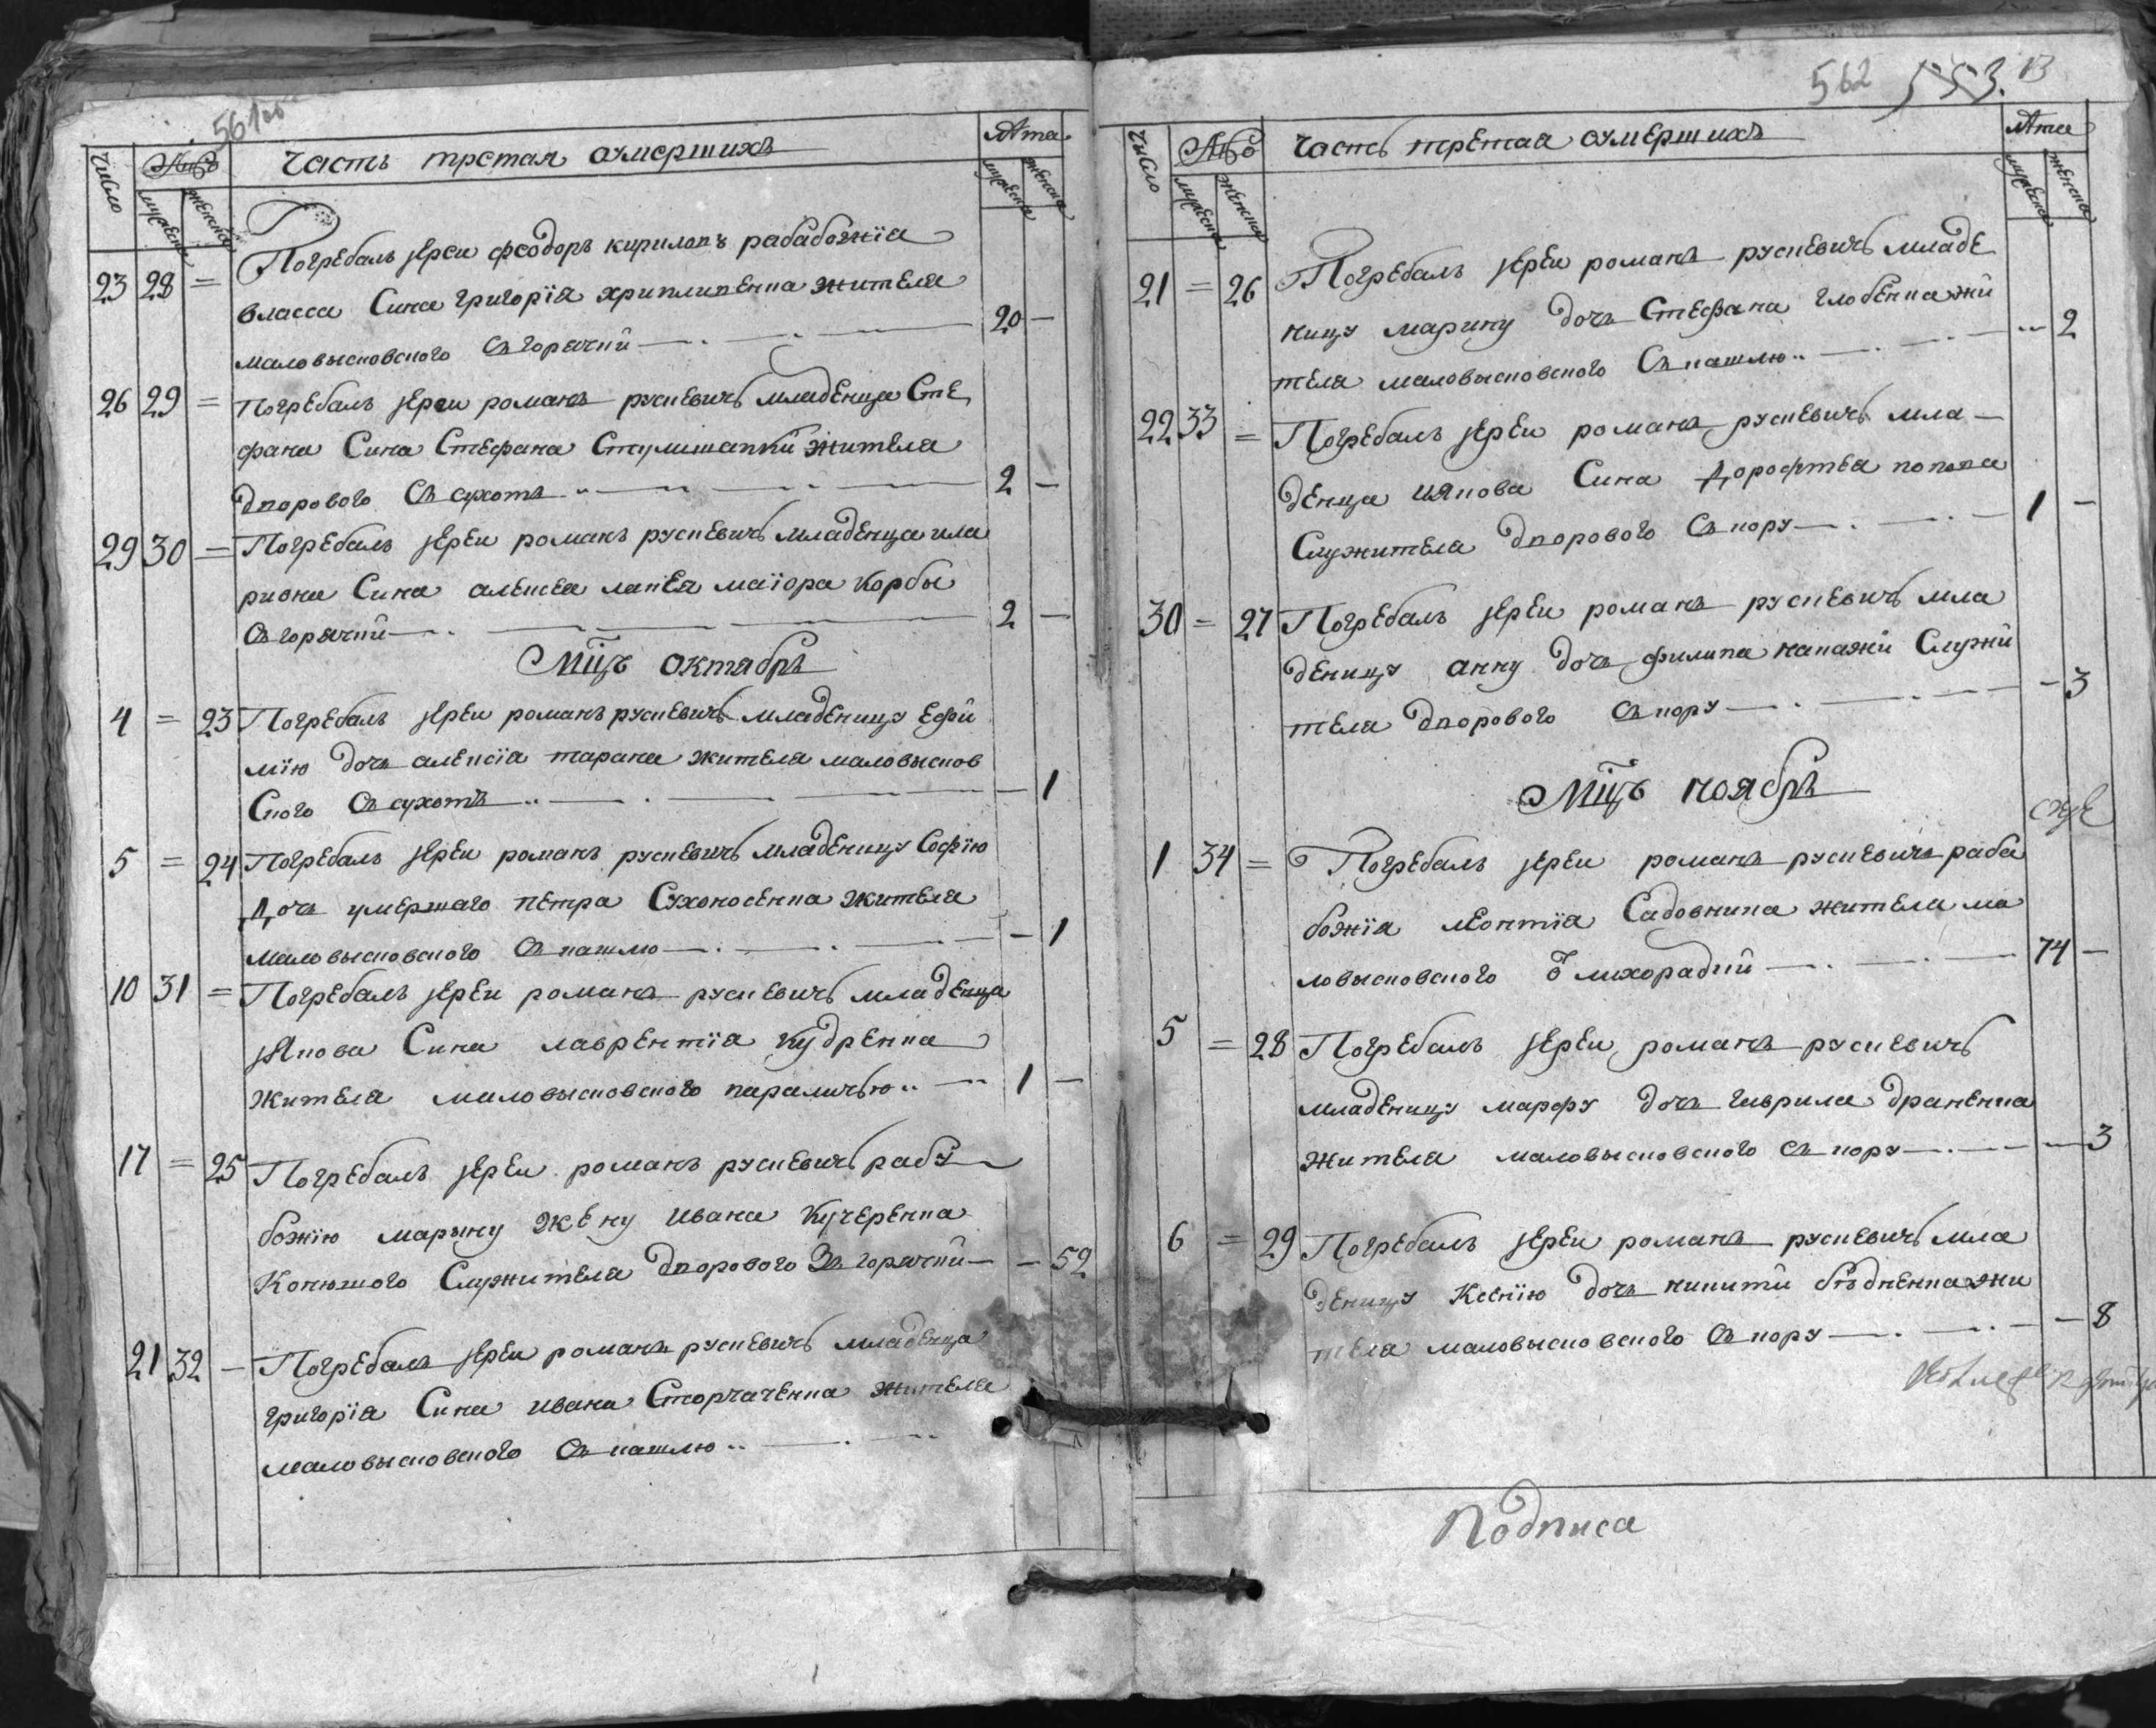 561об
Число
мужеска
женска
Часть третая умершихъ
Лѣта
мужеска
женска
23 28 = Погребалъ іереи феодоръ кириловъ раба божїа
власса Сина григорїа хриплывенка жителя
маловысковского Съ горячки 20 —
26 29 = Погребалъ іереи романъ рускевичъ младенца Сте
фана Сина Стефана жителя
дворового Съ сухотъ 2 —
29 30 = Погребалъ іереи романъ рускевичъ младенца ила
риона Сина алексея лакея маїора Корбы
Съ горячки 2 —
Мцъ октябръ
4 = 23 Погребалъ іереи романъ рускевичъ младеницу Ефи
мїю дочъ алексїа тарана жителя маловысков
Ского Съ сухотъ — 1
5 = 24 Погребалъ іереи романъ рускевичъ младеницу Софїю
Дочъ умершаго петра Сухоносенка жителя
маловысковского Съ кашлю — 1
10 31 = Погребалъ іереи романъ рускевичъ младенца
іякова Сина лаврентїа Кудренка
жителя маловысковского параличъю 1 —
17 = 25 Погребалъ іереи романъ рускевичъ рабу
божїю марыну жену Ивана Кучеренка
Конюшого Служителя дворового Зъ горячки — 52
21 32 — Погребалъ іереи романъ рускевичъ младенца
григорїа Сина ивана Сторчаченка жителя
маловысковского Съ кашлю
562 553. 13
Число
мужеска
женска
Часть третая умершихъ
Лѣта
мужеска
женска
21 = 26 Погребалъ іереи романъ рускевичъ младе
ницу марину дочъ Стефана глобенка жи
теля маловысковского Съ кашлю — 2
22 33 = Погребалъ іереи романъ рускевичъ мла
денца иякова Сина Дорофтея
Служителя дворового Съ кору 1 —
30 = 27 Погребалъ іереи романъ рускевичъ мла
деницу анну дочъ филипа Служи
теля дворового Съ кору — 3
Мцъ ноябръ
1 34 = Погребалъ іереи романъ рускевичъ раба
божїа леонтїа Садовника жителя ма
ловысковского ѿ лихорадки 74 —
5 = 28 Погребалъ іереи романъ рускевичъ
младеницу марфу дочъ гаврила драненка
жителя маловысковского Съ кору — 3
6 = 29 Погребалъ іереи романъ рускевичъ мла
деницу Ксенїю дочъ никити бѣдненка жи
теля маловысковского Съ кору — 8
Подписа